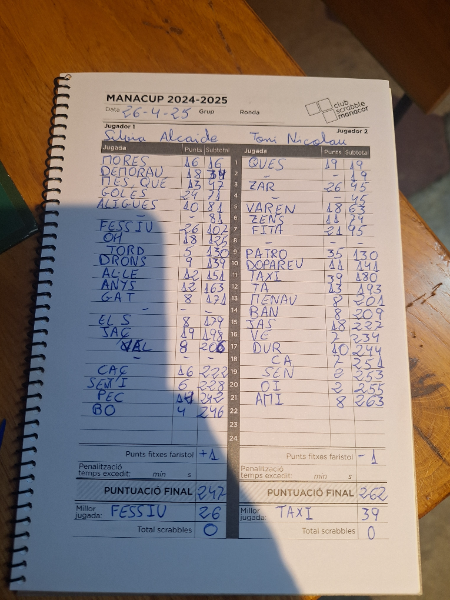 MANACUP 2024-2025
Data 26-4-25 Grup Ronda
club scrabble manacor
Jugador 1 Jugador 2
Silvia Alcaide Toni Nicolau
Jugada Punts Subtotal Jugada Punts Subtotal
MORES 16 16 1 QUES 19 19
DEMORAU 18 34 2 - - 19
MES, QUE 13 47 3 ZAR 26 45
GOLES 24 71 4 - - 45
ALIGUES 10 81 5 VAREN 18 63
- 81 6 ZENS 11 74
FESSIU 26 107 7 FITA 21 95
OH 18 125 8 - -
JORD 5 130 9 PATRO 35 130
DRONS 9 139 10 DOPAREU 11 141
AL·LE 12 151 11 TAXI 39 180
ANYS 12 163 12 TA 13 193
GAT 8 171 13 MENAU 8 201
- - - 14 BAN 8 209
EL S 8 179 15 JAS 18 227
SAG 19 198 16 VE 7 234
VAL 8 206 17 DUR 10 244
18 CA 7 251
CAÇ 16 222 19 SEN 2 253
SENTI 6 228 20 OI 2 255
PEC 14 242 21 AMI 8 263
BO 4 246 22
23
24
Punts fitxes faristol +1 Punts fitxes faristol -1
Penalització temps excedit: min s Penalització temps excedit: min s
PUNTUACIÓ FINAL 247 PUNTUACIÓ FINAL 262
Millor jugada: FESSIU 26 Millor jugada: TAXI 39
Total scrabbles 0 Total scrabbles 0